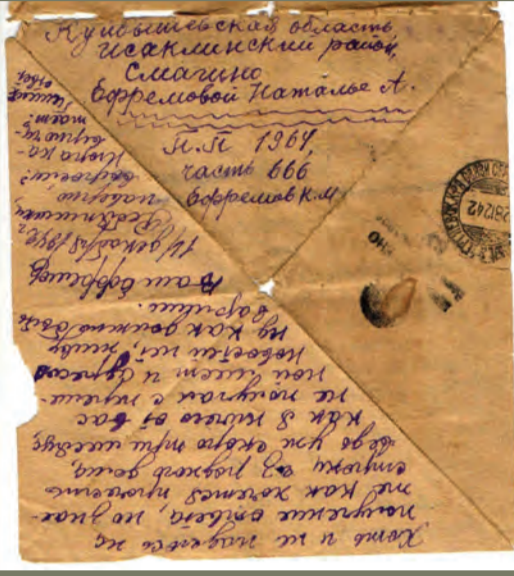 Куйбышевская область
Исаклинский район,
Смагино
Ефремовой Наталье А.
П.П 1964,
часть 666
Ефремов К.М
281242
Хоть и не надеюсь на
получение ответа, но знае-
те как хочется прочесть
строки из родного дома,
ведь уж скоро три месяца,
как я ничего от вас
не получал с переме-
ной мест и адресов
новостей нет, живу
ну как должно быть
Ваш Ефремов
14 декабря 1942 г
Ребятишки,
наверно
выросли?
верно чи-
тает?
ответ